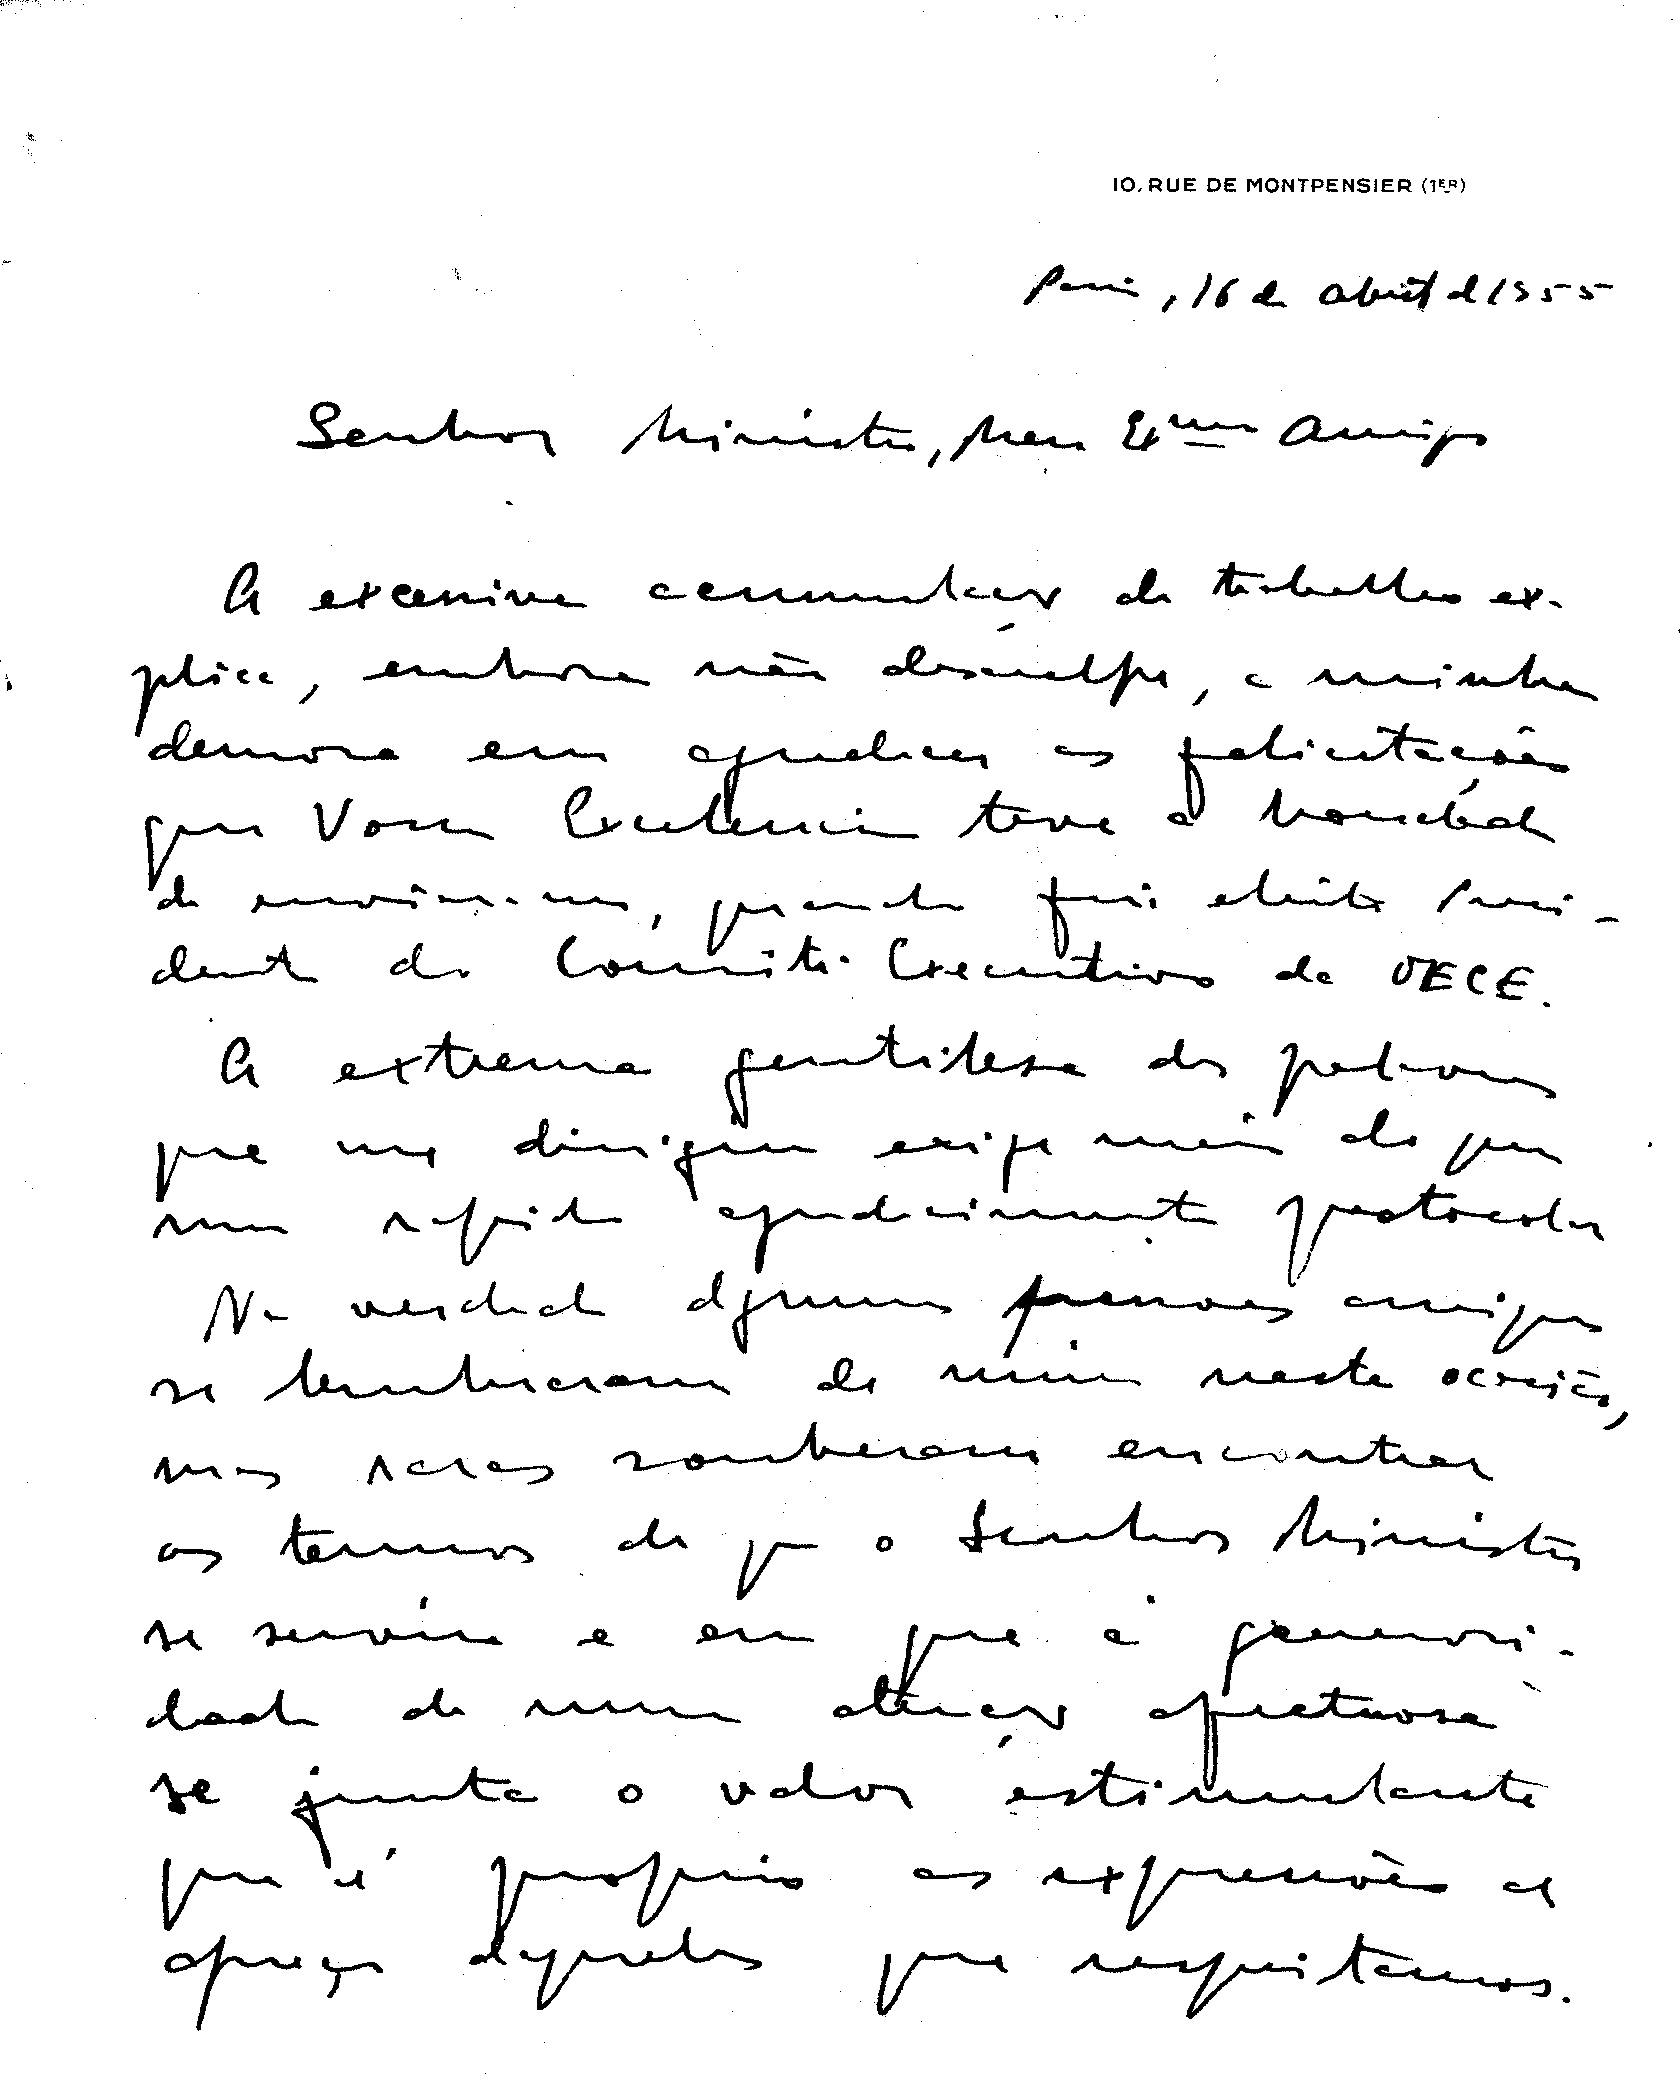 10, RUE DE MONTPENSIER (1ER)
Paris, 16 de abril de 1955
Senhor Ministro, Meu Exmo Amigo
A excessiva acumulação de trabalho ex-
plica, embora não desculpe, a minha
demora em agradecer as felicitações
que Vossa Excelencia teve a bondade
de enviar-me, quando fui eleito Presi-
dente do Comité Executivo da OECE.
A extrema gentilesa das palavras
que me dirigiu exige mais do que
um rapido agradecimento protocolar
Na verdade algumas pessoas amigas
se lembraram de mim nesta ocasião,
mas raras souberam encontrar
os termos de que o Senhor Ministro
se serviu e em que à generosi-
dade de uma atenção afectuosa
se junta o valor estimulante
que é proprio as expressões de
apreço daqueles que respeitamos.